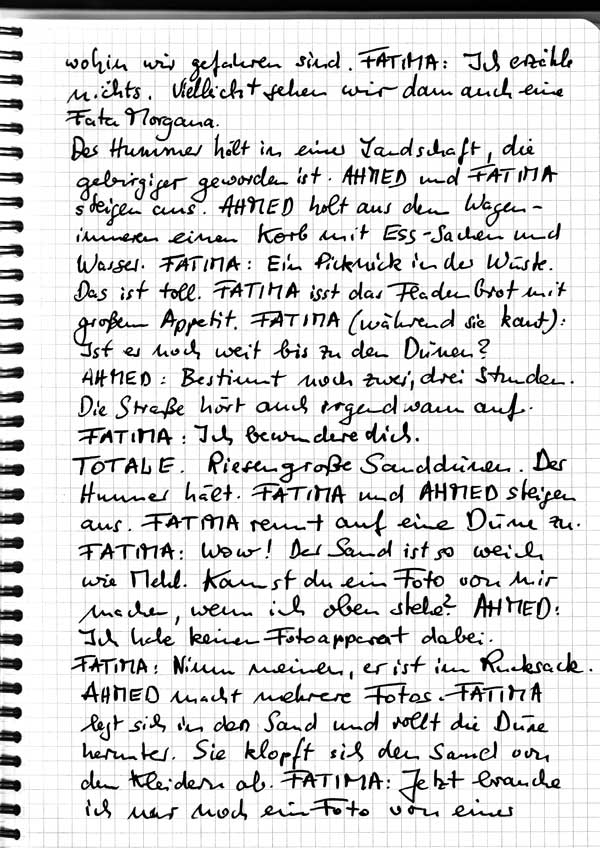 wohin wir gefahren sind. FATIMA: Ich erzähle
nichts. Vielleicht sehen wir dann auch eine
Fata Morgana.
Der Hummer hält in einer Landschaft, die
gebirgiger geworden ist. AHMED und FATIMA
steigen aus. AHMED holt aus dem Wagen-
inneren einen Korb mit Ess-Sachen und
Wasser. FATIMA: Ein Picknick in der Wüste.
Das ist toll. FATIMA isst das Fladenbrot mit
großem Appetit. FATIMA (während sie kaut):
Ist es noch weit bis zu den Dünen?
AHMED: Bestimmt noch zwei, drei Stunden.
Die Straße hört auch irgendwann auf.
FATIMA: Ich bewundere dich.
TOTALE. Riesengroße Sanddünen. Der
Hummer hält. FATIMA und AHMED steigen
aus. FATIMA rennt auf eine Düne zu.
FATIMA: Wow! Der Sand ist so weich
wie Mehl. Kannst du ein Foto von mir
machen, wenn ich oben stehe? AHMED:
Ich habe keinen Fotoapparat dabei.
FATIMA: Nimm meinen, er ist im Rucksack.
AHMED macht mehrere Fotos. FATIMA
legt sich in den Sand und rollt die Düne
herunter. Sie klopft sich den Sand von
den Kleidern ab. FATIMA: Jetzt brauche
ich nur noch ein Foto von einer